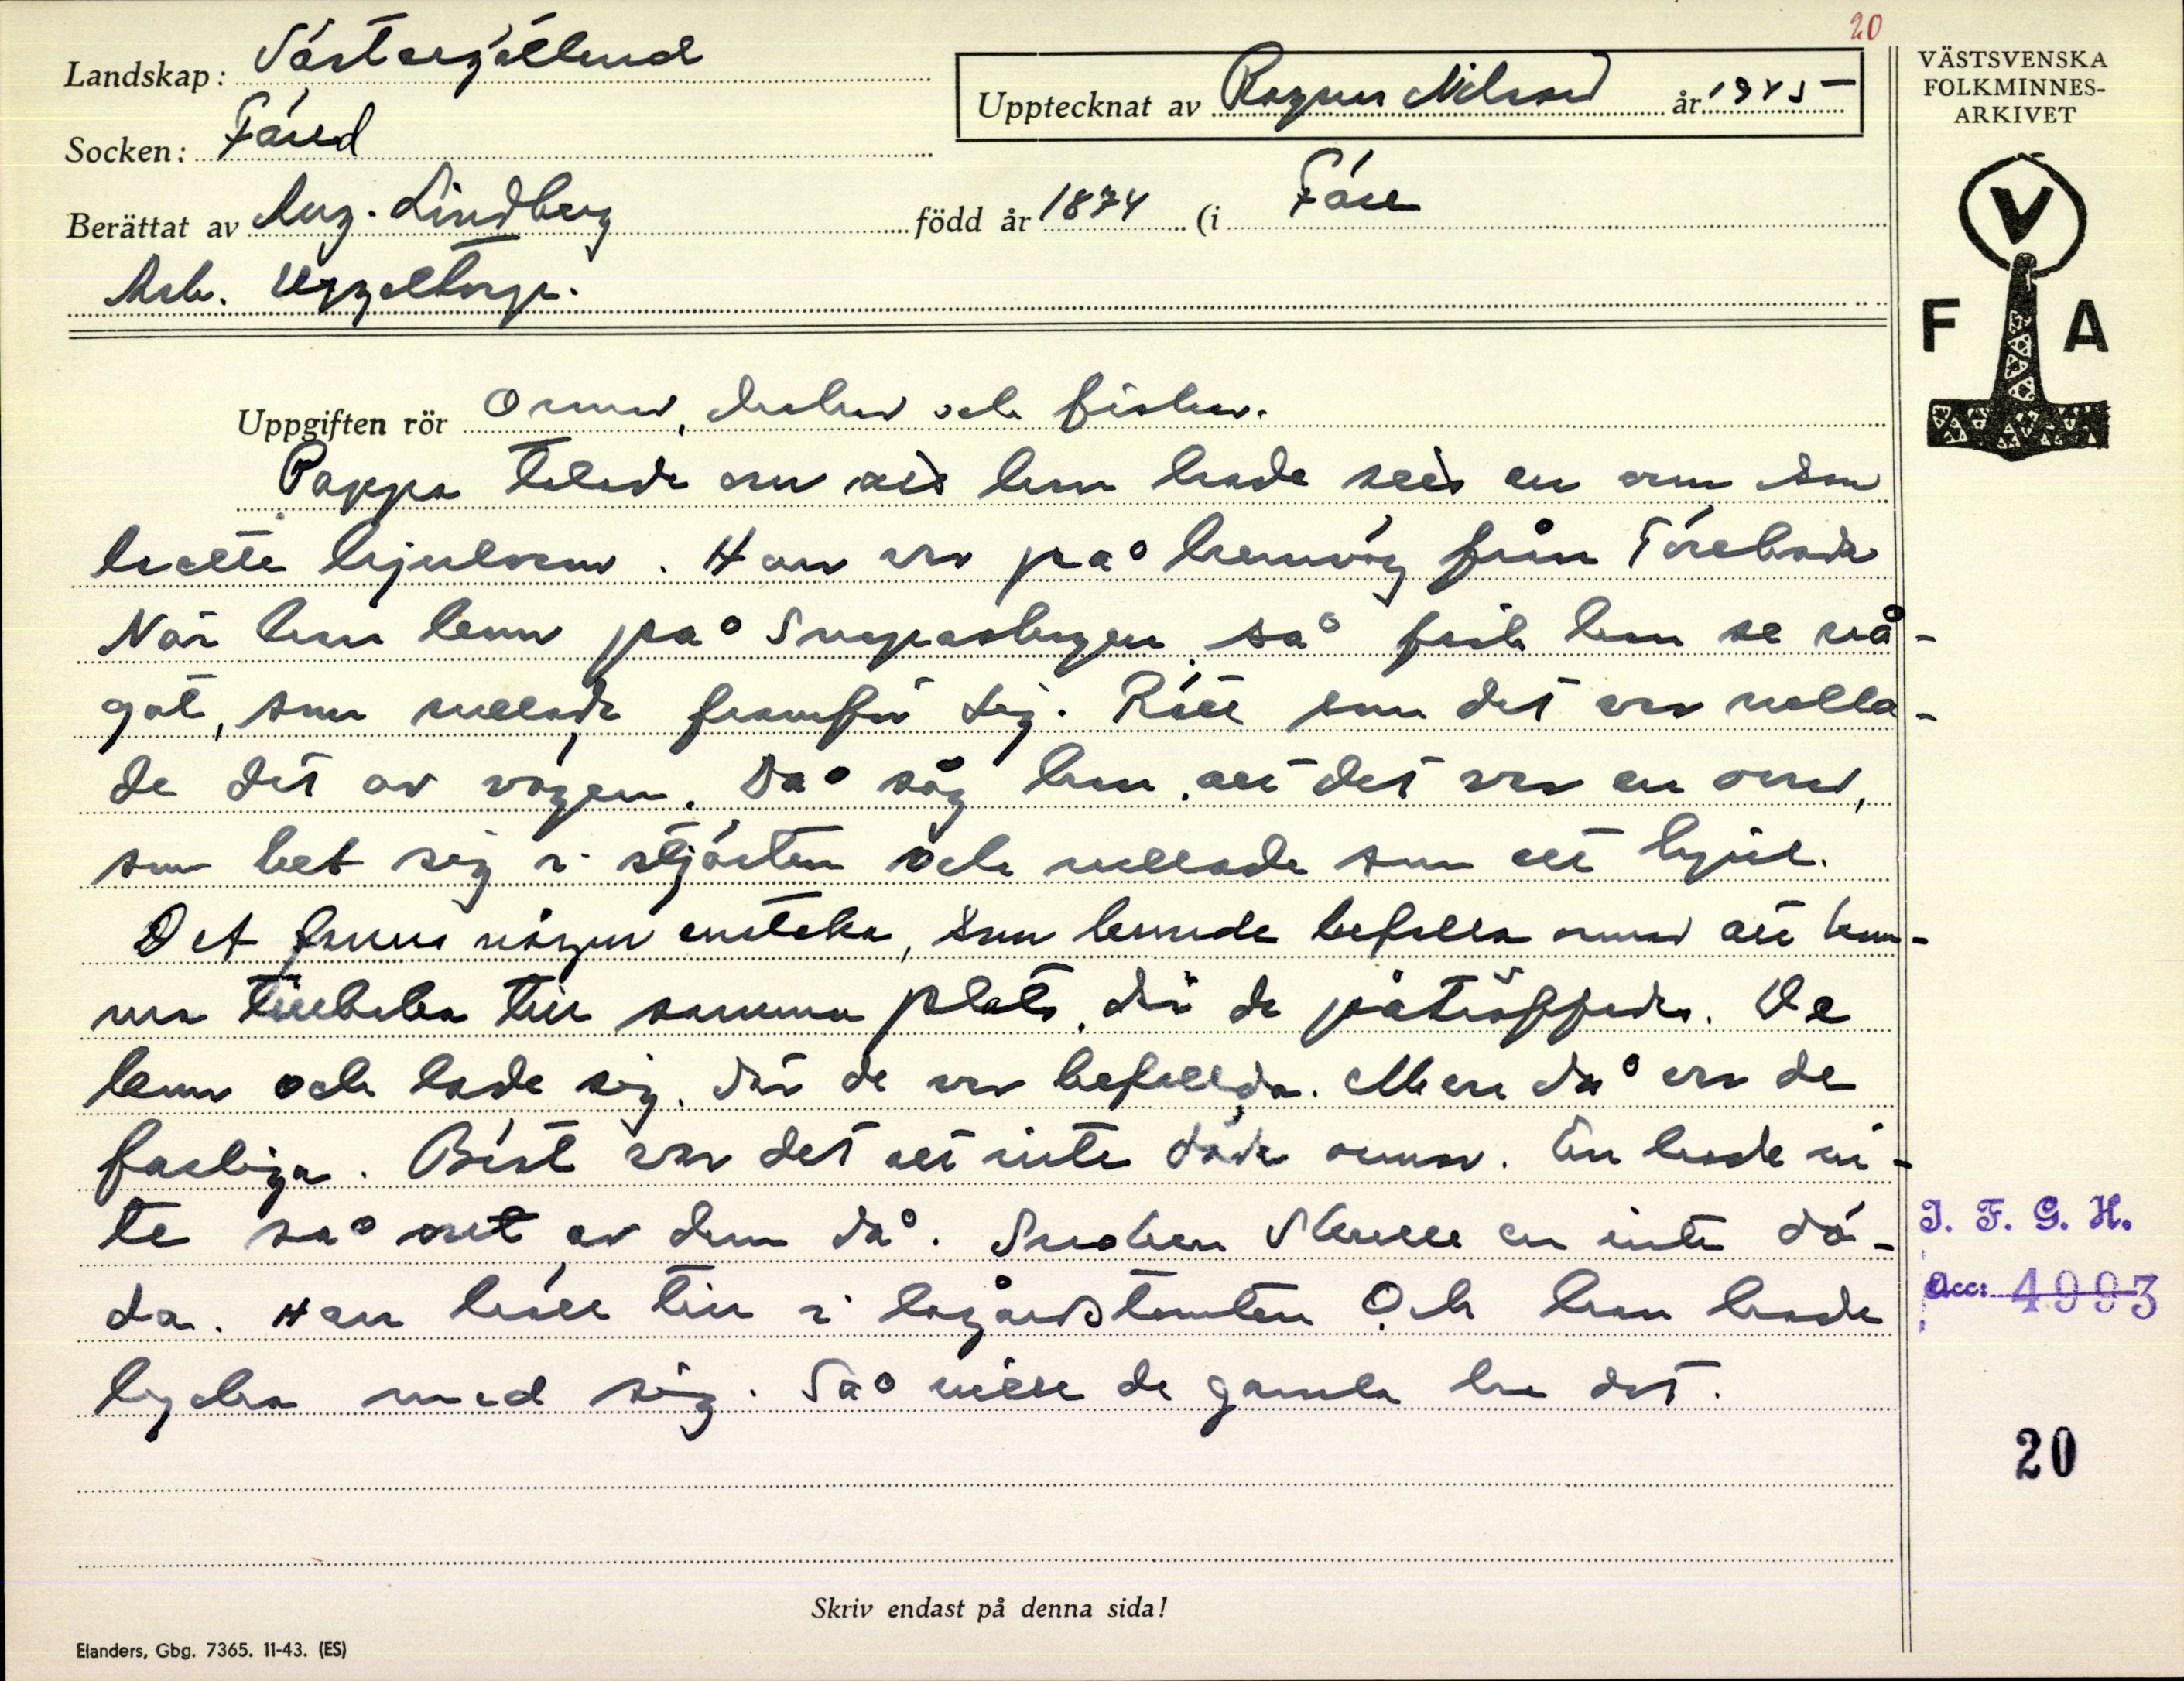 20
Landskap: Västergötland
Upptecknat av Ragnar Nilsson år 1945
VÄSTSVENSKA
FOLKMINNES-
ARKIVET
Socken: Färed
Berättat av Aug. Lindberg född år 1874 (i Färe
Arb.
V
F A
Uppgiften rör Ormar, och fiskar.
Pappa talade om att han hade sett en orm som
hette hjulorm. Han var på hemväg från Töreboda
När han kom på så fick han se nå-
got, som rullade framför sig. Rätt som det var rulla-
de det av vägen. Då såg han, att det var en orm,
som bet sig i stjärten och rullade som ett hjul.
Det fanns några enstaka, som kunde befalla ormar att kom-
ma tillbaka till samma plats, där de påträffades. De
kom och lade sig, där de var befallda. Men då var de
farliga. Bäst var det att inte döda ormar. En hade in-
te så ont av dem då. Snoken skulle en inte dö-
da. Han höll till i lagårdstomten Och han hade
lycka med sig. Så ville de gamla ha det.
I. F. G. H.
Acc: 4993
20
Skriv endast på denna sida!
Elanders, Gbg. 7365. 11-43. (ES)